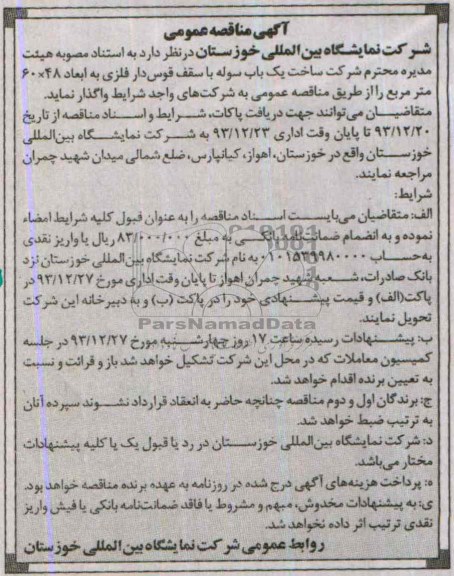 آگهی مناقصه عمومی
شرکت نمایشگاه بین المللی خوزستان درنظر دارد به استناد مصوبه هیئت
مدیره محترم شرکت ساخت یک باب سوله با سقف قوس‌دار فلزی به ابعاد ۴۸×۶۰
متر مربع را از طریق مناقصه عمومی به شرکت‌های واجد شرایط واگذار نماید.
متقاضیان می‌توانند جهت دریافت پاکات، شرایط و اسناد مناقصه از تاریخ
۹۳/۱۲/۲۰ تا پایان وقت اداری ۹۳/۱۲/۲۳ به شرکت نمایشگاه بین‌المللی
خوزستان واقع در خوزستان، اهواز، کیانپارس، ضلع شمالی میدان شهید چمران
مراجعه نمایند.
شرایط:
الف: متقاضیان می‌بایست اسناد مناقصه را به عنوان قبول کلیه شرایط امضاء
نموده و به انضمام ضمانتنامه بانکی به مبلغ ۸۳/۰۰۰/۰۰۰ ریال یا واریز نقدی
به‌حساب ۰۱۰۱۵۳۹۹۸۰۰۰۰ به نام شرکت نمایشگاه بین‌المللی خوزستان نزد
بانک صادرات، شعبه شهید چمران اهواز تا پایان وقت اداری مورخ ۹۳/۱۲/۲۷ در
پاکت (الف) و قیمت پیشنهادی خود را در پاکت (ب) و به دبیرخانه این شرکت
تحویل نمایند.
ParsNamadData
ب: پیشنهادات رسیده ساعت ۱۷ روز چهارشنبه مورخ ۹۳/۱۲/۲۷ در جلسه
کمیسیون معاملات که در محل این شرکت تشکیل خواهد شد باز و قرائت و نسبت
به تعیین برنده اقدام خواهد شد.
ج: برندگان اول و دوم مناقصه چنانچه حاضر به انعقاد قرارداد نشوند سپرده آنان
به ترتیب ضبط خواهد شد.
د: شرکت نمایشگاه بین‌المللی خوزستان در رد یا قبول یک یا کلیه پیشنهادات
مختار می‌باشد.
ه: پرداخت هزینه‌های آگهی درج شده در روزنامه به عهده برنده مناقصه خواهد بود.
ی: به پیشنهادات مخدوش، مبهم و مشروط یا فاقد ضمانت‌نامه بانکی یا فیش واریز
نقدی ترتیب اثر داده نخواهد شد.
روابط عمومی شرکت نمایشگاه بین المللی خوزستان